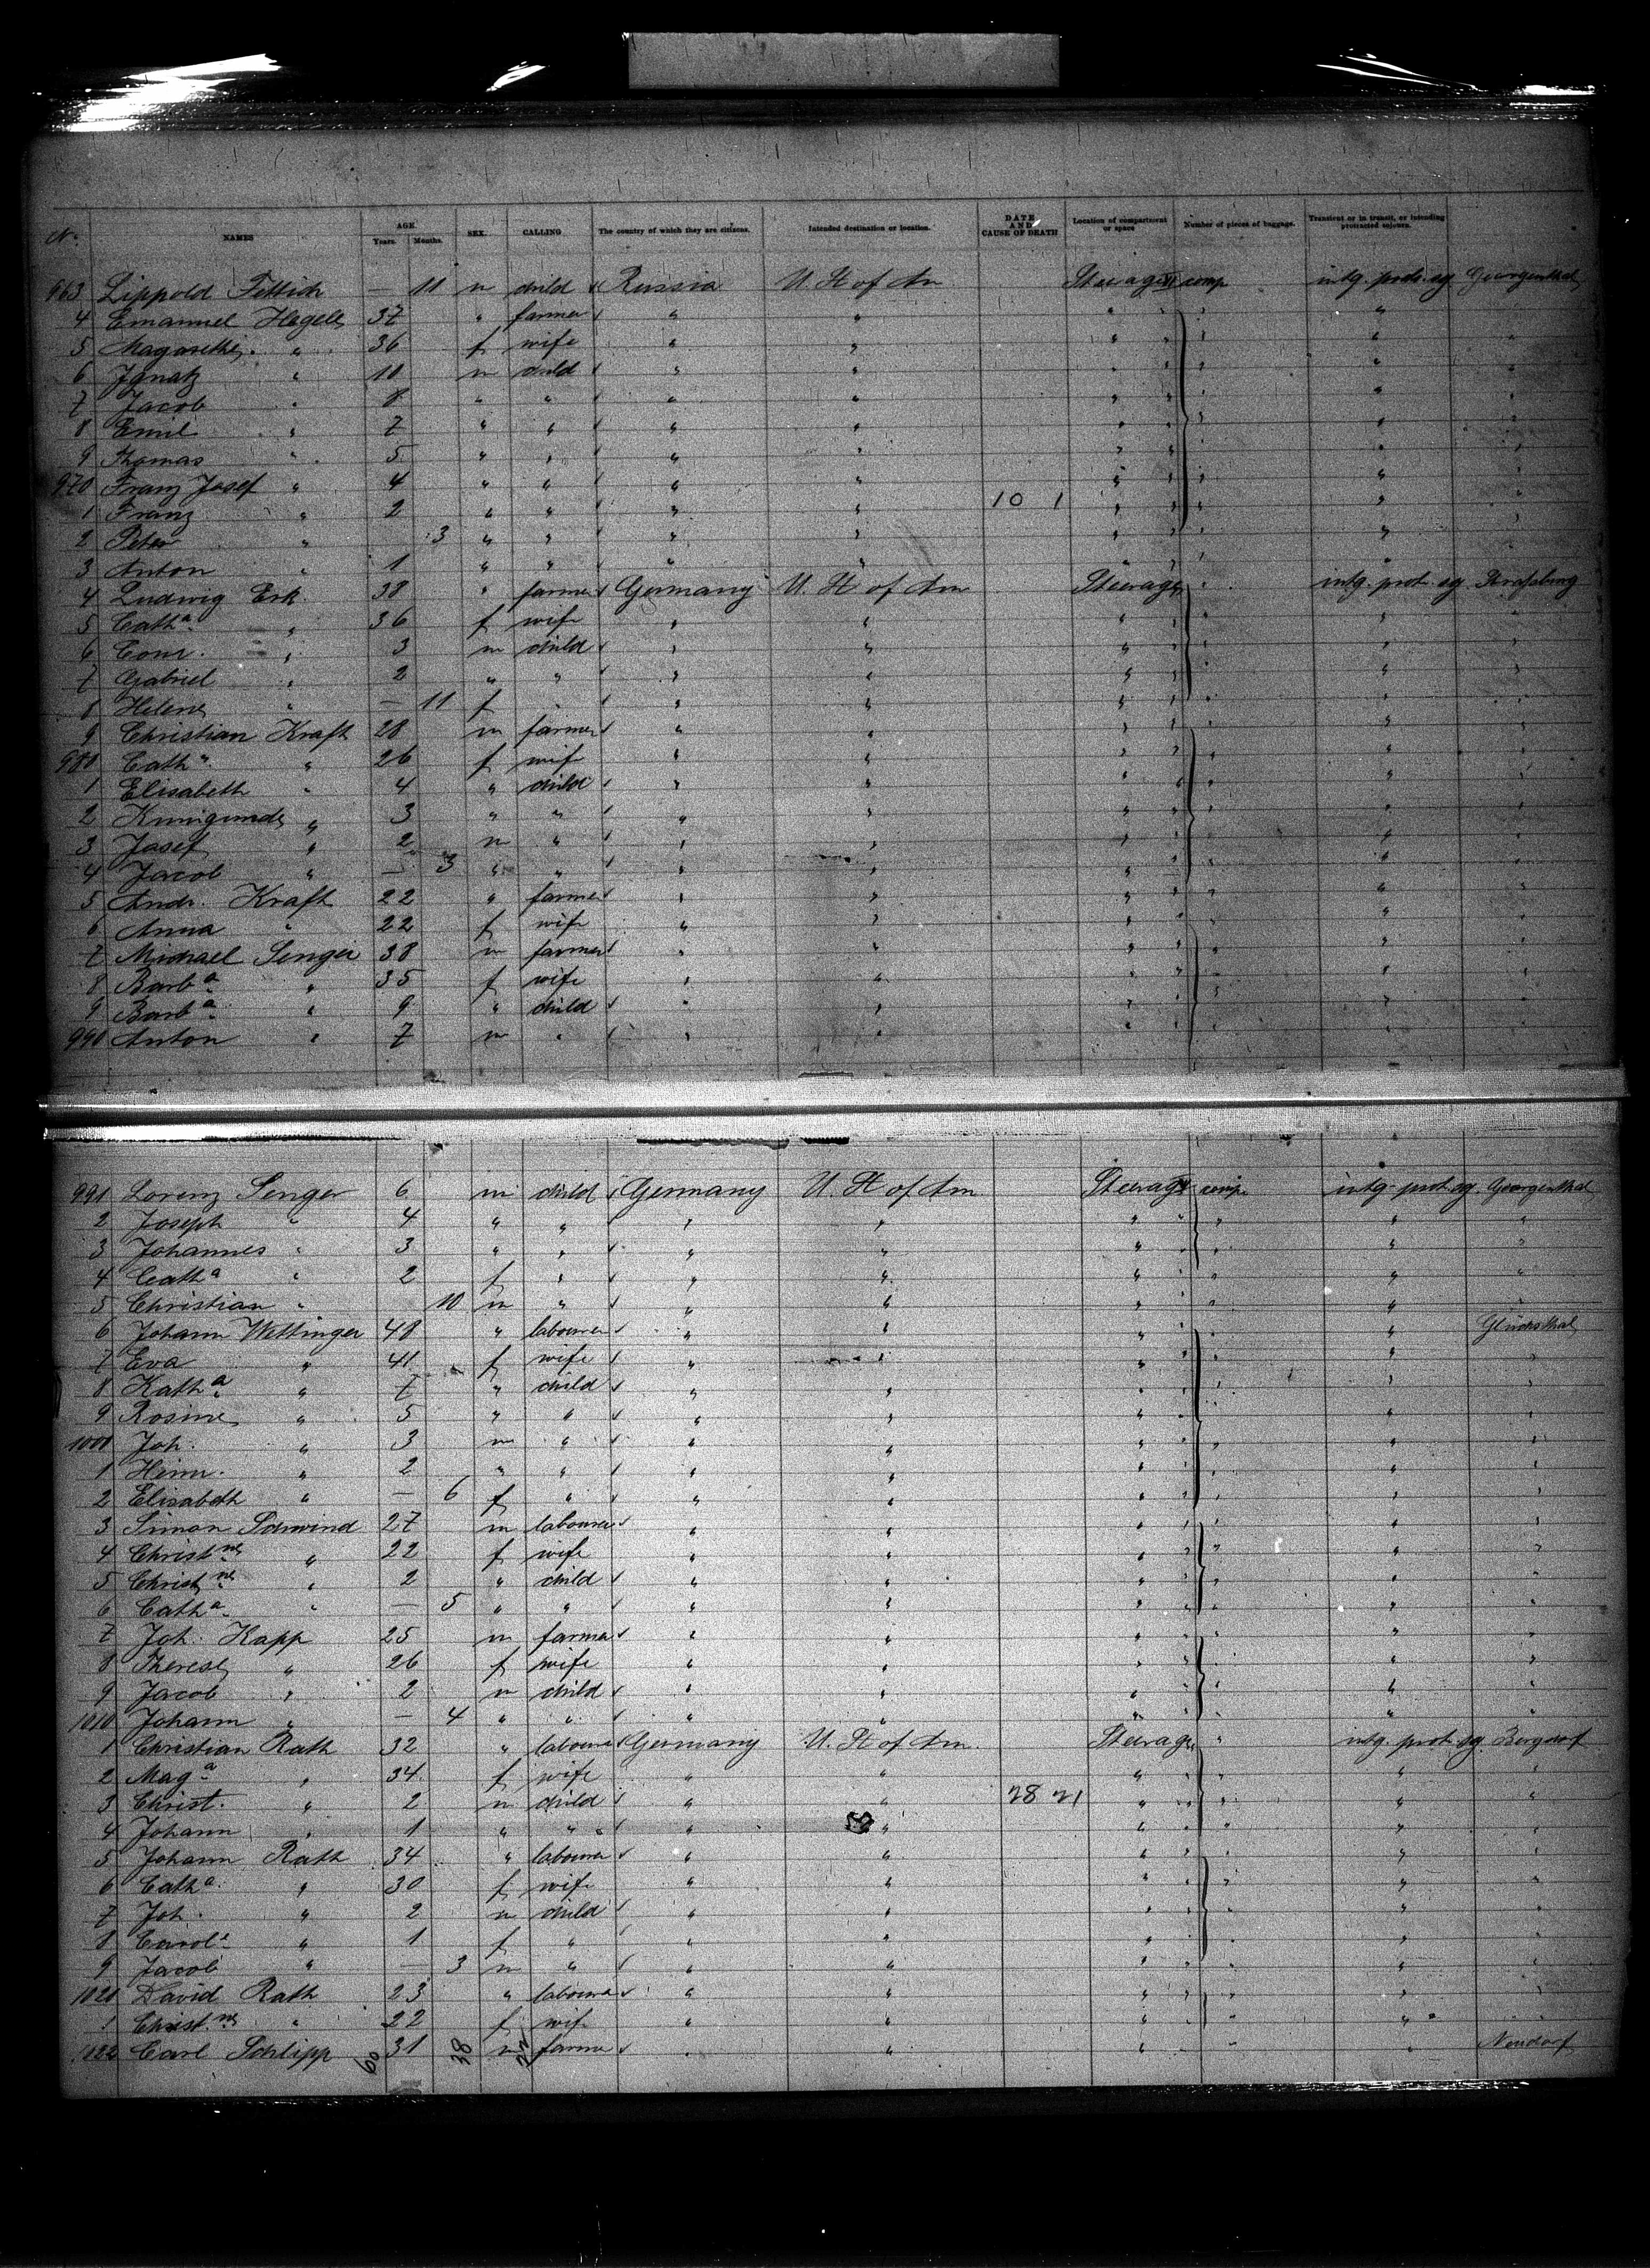 No. NAMES AGE Years. Months. SEX. CALLING The country of which they are citizens. Intended destination or location. DATE AND CAUSE OF DEATH Location of compartment or space Number of pieces of baggage. Transient or in transit, or intending protracted sojourn.
963 Lippold Fettich — 11 m child Russia U. St of Am Steerage comp intg. protr. sg Georgenthal
4 Emanuel Hegele 37 " farmer " " " " "
5 Magarethe " 36 f wife " " " " "
6 Ignatz " 10 m child " " " " "
7 Jacob " 8 " " " " " " "
8 Emil " 7 " " " " " " "
9 Thomas " 5 " " " " " " "
970 Franz Josef " 4 " " " " " " "
1 Franz " 2 " " " " 10 1 " " "
2 Peter " 3 " " " " " " "
3 Anton " 1 " " " " " " "
4 Ludwig Erk 38 " farmer Germany U. St of Am Steerage " intg. prot. sg Strassburg
5 Cath^a " 36 f wife " " " " "
6 Conr. " 3 m child " " " " "
7 Gabriel " 2 " " " " " " "
8 Helene " — 11 f " " " " " "
9 Christian Kraft 28 m farmer " " " " "
980 Cath^a " 26 f wife " " " " "
1 Elisabeth " 4 " child " " " " "
2 Kunigunde " 3 " " " " " " "
3 Josef " 2 m " " " " " "
4 Jacob " — 3 " " " " " " "
5 Andr. Kraft 22 " farmer " " " " "
6 Anna " 22 f wife " " " " "
7 Michael Senger 38 m farmer " " " " "
8 Barb^a " 35 f wife " " " " "
9 Barb^a " 9 " child " " " " "
990 Anton " 7 m " " " " " "
991 Lorenz Senger 6 m child Germany U. St of Am Steerage comp intg. prot. sg. Georgenthal
2 Joseph " 4 " " " " " " "
3 Johannes " 3 " " " " " " "
4 Cath^a " 2 f " " " " " "
5 Christian " 10 m " " " " " "
6 Johann Wettinger 48 " labourer " " " " Glücksthal
7 Eva " 41 f wife " " " " "
8 Kath^a " 7 " child " " " " "
9 Rosine " 5 " " " " " " "
1000 Joh. " 3 m " " " " " "
1 Heinr. " 2 " " " " " " "
2 Elisabeth " — 6 f " " " " " "
3 Simon Schwind 27 m labourer " " " " "
4 Christ^ne " 22 f wife " " " " "
5 Christ^ne " 2 " child " " " " "
6 Cath^a " — 5 " " " " " " "
7 Joh. Kapp 25 m farmer " " " " "
8 Therese " 26 f wife " " " " "
9 Jacob " 2 m child " " " " "
1010 Johann " — 4 " " " " " " "
1 Christian Rath 32 " labourer Germany U. St of Am Steerage " intg. prot. sg. Bergdorf
2 Mag^a " 34 f wife " " " " "
3 Christ. " 2 m child " " 28 21 " " "
4 Johann " 1 " " " " " " "
5 Johann Rath 34 " labourer " " " " "
6 Cath^a " 30 f wife " " " " "
7 Joh. " 2 m child " " " " "
8 Carol^e " 1 f " " " " " "
9 Jacob " — 3 m " " " " " "
1020 David Rath 23 " labourer " " " " "
1 Christ^ne " 22 f wife " " " " "
1022 Carl Schlipp 31 m farmer " " " " Neudorf
60 38 22